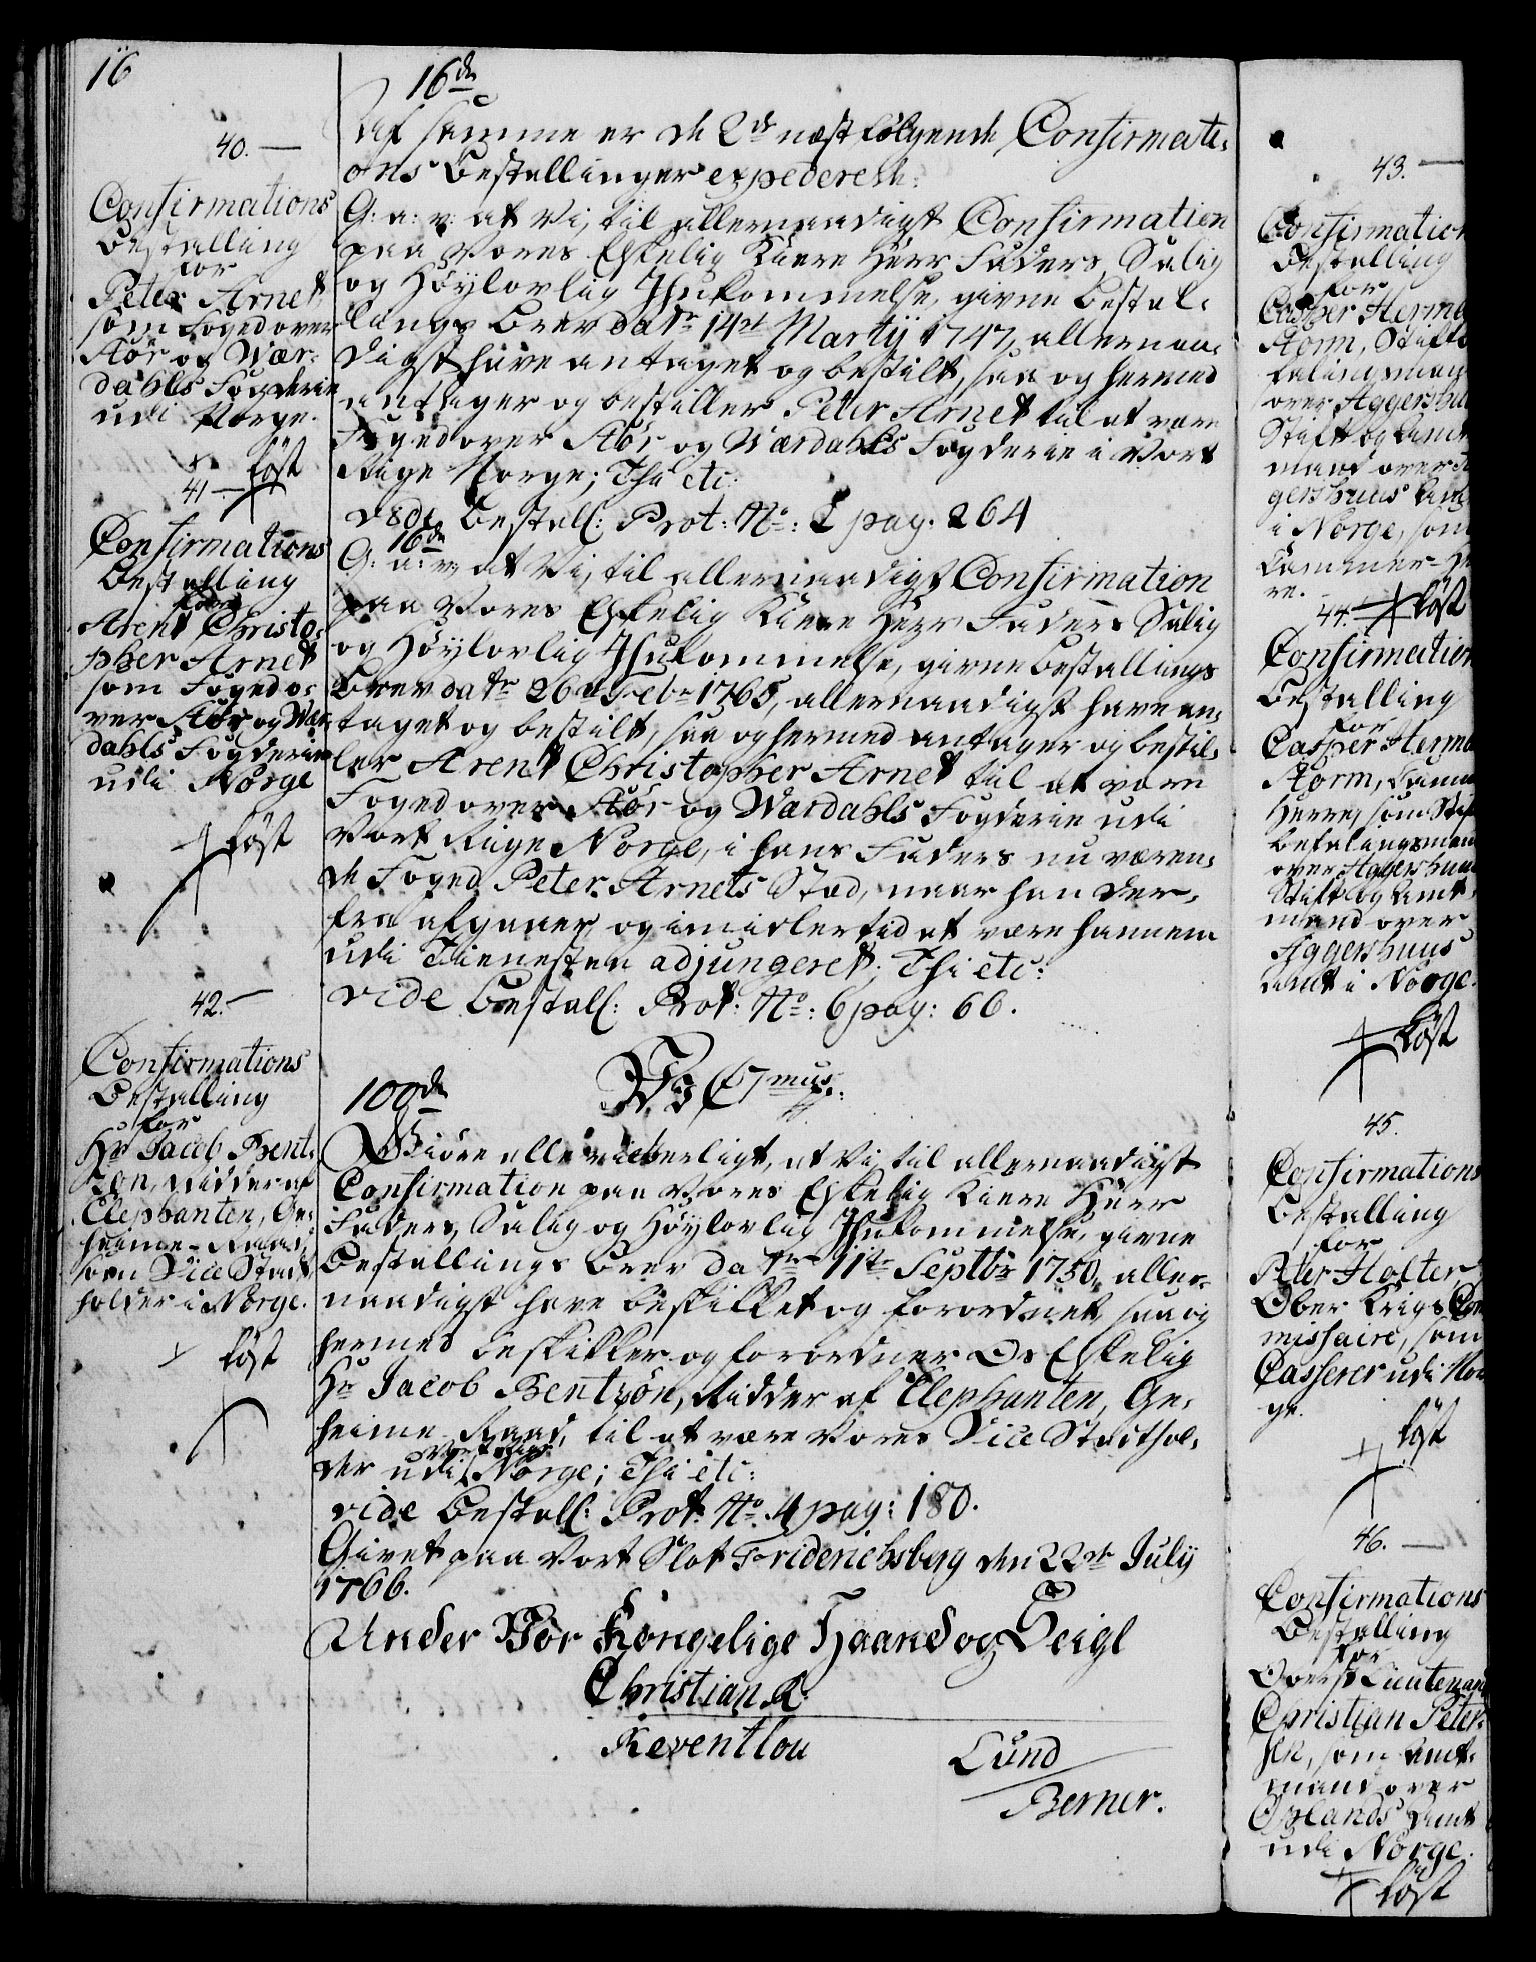 16
40.
Confirmations
Bestalling
for
Peter Arnet
som Foged over
Stör og Wær-
dahls Fogderie
udi Norge.
+ löst
41.
Confirmations
Bestalling
for
Arent Christo-
pher Arnet
som Foged o-
ver Stör og Wær
dahls Fogderie
udi Norge
löst
42.
Confirmations
Bestalling
for
Hr Jacob Bent-
zon, Ridder af
Elephanten, Ge-
heime-Raad,
som Vice Stadt
holder i Norge.
+ löst
16de
Af samme er de 2de næstfölgende Confirmati-
ons Bestallinger expederede:
G: a: v: at Vi, til allernaadigst Confirmation
paa Vores Elskelig Kiere Herr Faders, Salig
og Höylovlig Ihukommelse, givne Bestal-
lings Brev datr 14de Martij 1747, allernaa-
digst have antaget og bestilt, saa og hermed
antager og bestiller Peter Arnet til at være
Foged over Stör og Wærdahls Fogderie i Vort
Rige Norge; Thi etc:
vide Bestall: Prot: No: pag. 264
16de
G: a: v: at Vi, til allernaadigst Confirmation
paa Vores Elskelig Kiere Herr Faders Salig
og Höylovlig Ihukommelse, givne Bestallings
Brev datr 26de Febr 1765, allernaadigst have an-
taget og bestilt, saa og hermed antager og bestil-
ler Arent Christopher Arnet til at være
Foged over Stör og Wærdahls Fogderie udi
Vort Rige Norge, i hans Faders nu væren-
de Foged Peter Arnets Stæd, naar han der-
fra afgaaer, og imidlertid at være hannem
udi Tienesten adjungeret; Thi etc:
vide Bestall: Prot: No: 6 pag: 66.
100de
Giöre alle vitterligt, at Vi til allernaadigst
Confirmation paa Vores Elskelig Kiere Herr
Faders, Salig og Höylovlig Ihukommelse, givne
Bestallings Brev datr 11te Septbr 1750, aller-
naadigst have beskikket og forordnet, saa og
hermed beskikker og forordner Os Elskelig
Hr Jacob Bentzön, Ridder af Elephanten, Ge-
heime-Raad, til at være Vores Vice Stadthol-
Vort Rige
der udi Norge; Thi etc:
vide Bestall: Prot: No 4 pag: 180.
Givet paa Vort Slot Friderichsberg den 22de Julij
1766.
Under Vor Kongelige Haand og Seigl
Christian R.
Reventlou
Lund
Berner.
43.
Confirmation
Bestalling
for
Casper Herma
Storm, Stifts
befalingsmand
over Aggershuus
Stift og Amt
mand over A
gershuus Amt
i Norge, som
Cammer-Her
re.
44. löst
Confirmation
Bestalling
for
Casper Herma
Storm, Camm
Herre, som Stift
befalingsmand
over Aggershuus
Stift og Amt-
mand over
Aggershuus
Amt i Norge.
löst
45.
Confirmations
Bestalling
for
Peter Holter
Ober Krigs Com
missaire, som
Casserer udi Nor
ge.
löst
46.
Confirmations
Bestalling
for
Oberst Lieutenant
Christian Peter-
sen, som Amt-
mand over
Oplands Amt
udi Norge.
löst